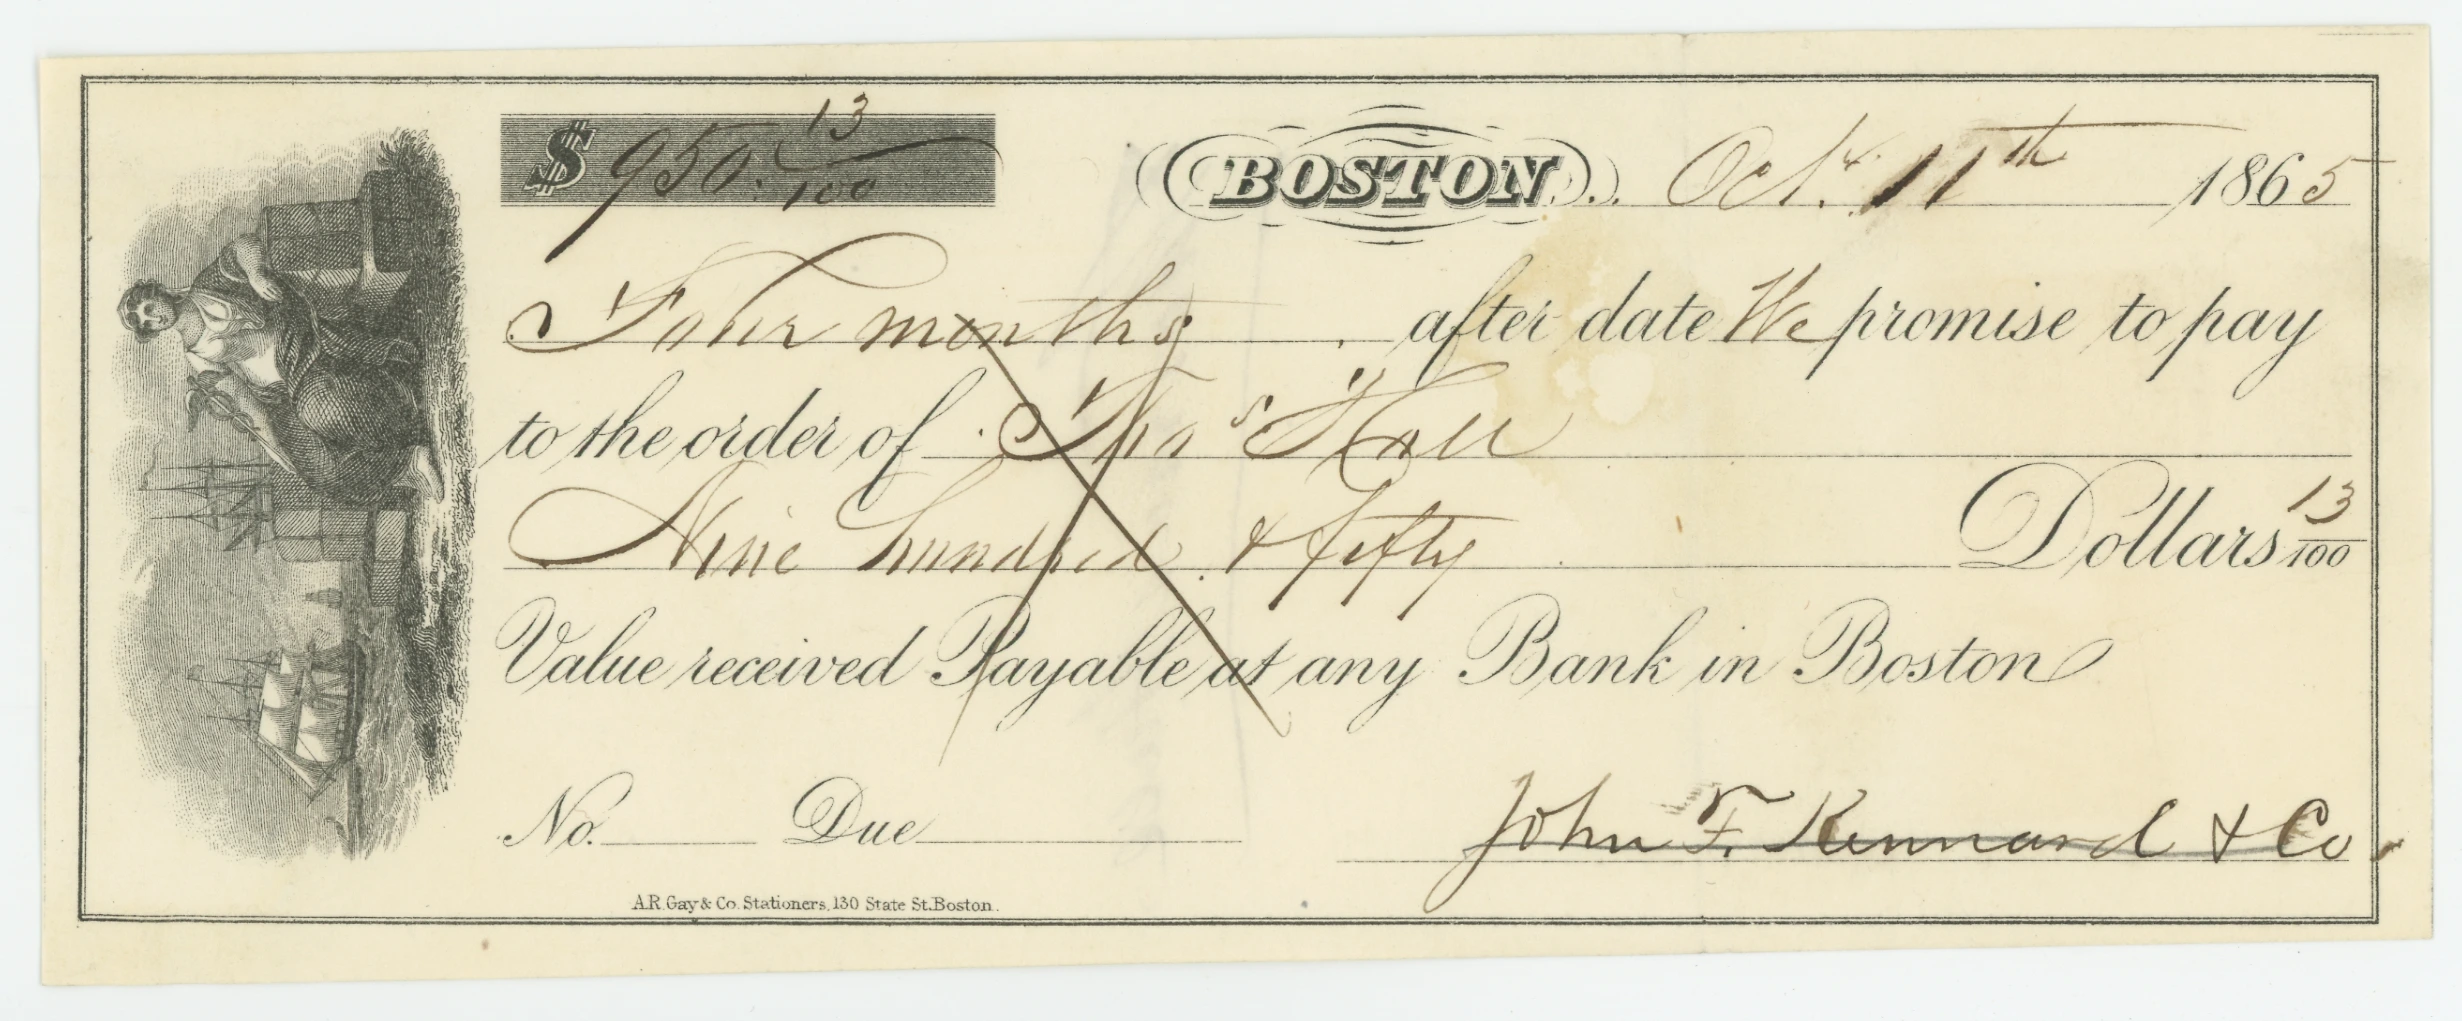 $ 950. 13/100 BOSTON. Oct. 11th 1865
Four months after date We promise to pay
to the order of Thos Hall
Nine hundred & fifty Dollars 13/100
Value received Payable at any Bank in Boston
No. Due John F. Kennard & Co.
A.R. Gay & Co. Stationers, 130 State St. Boston.